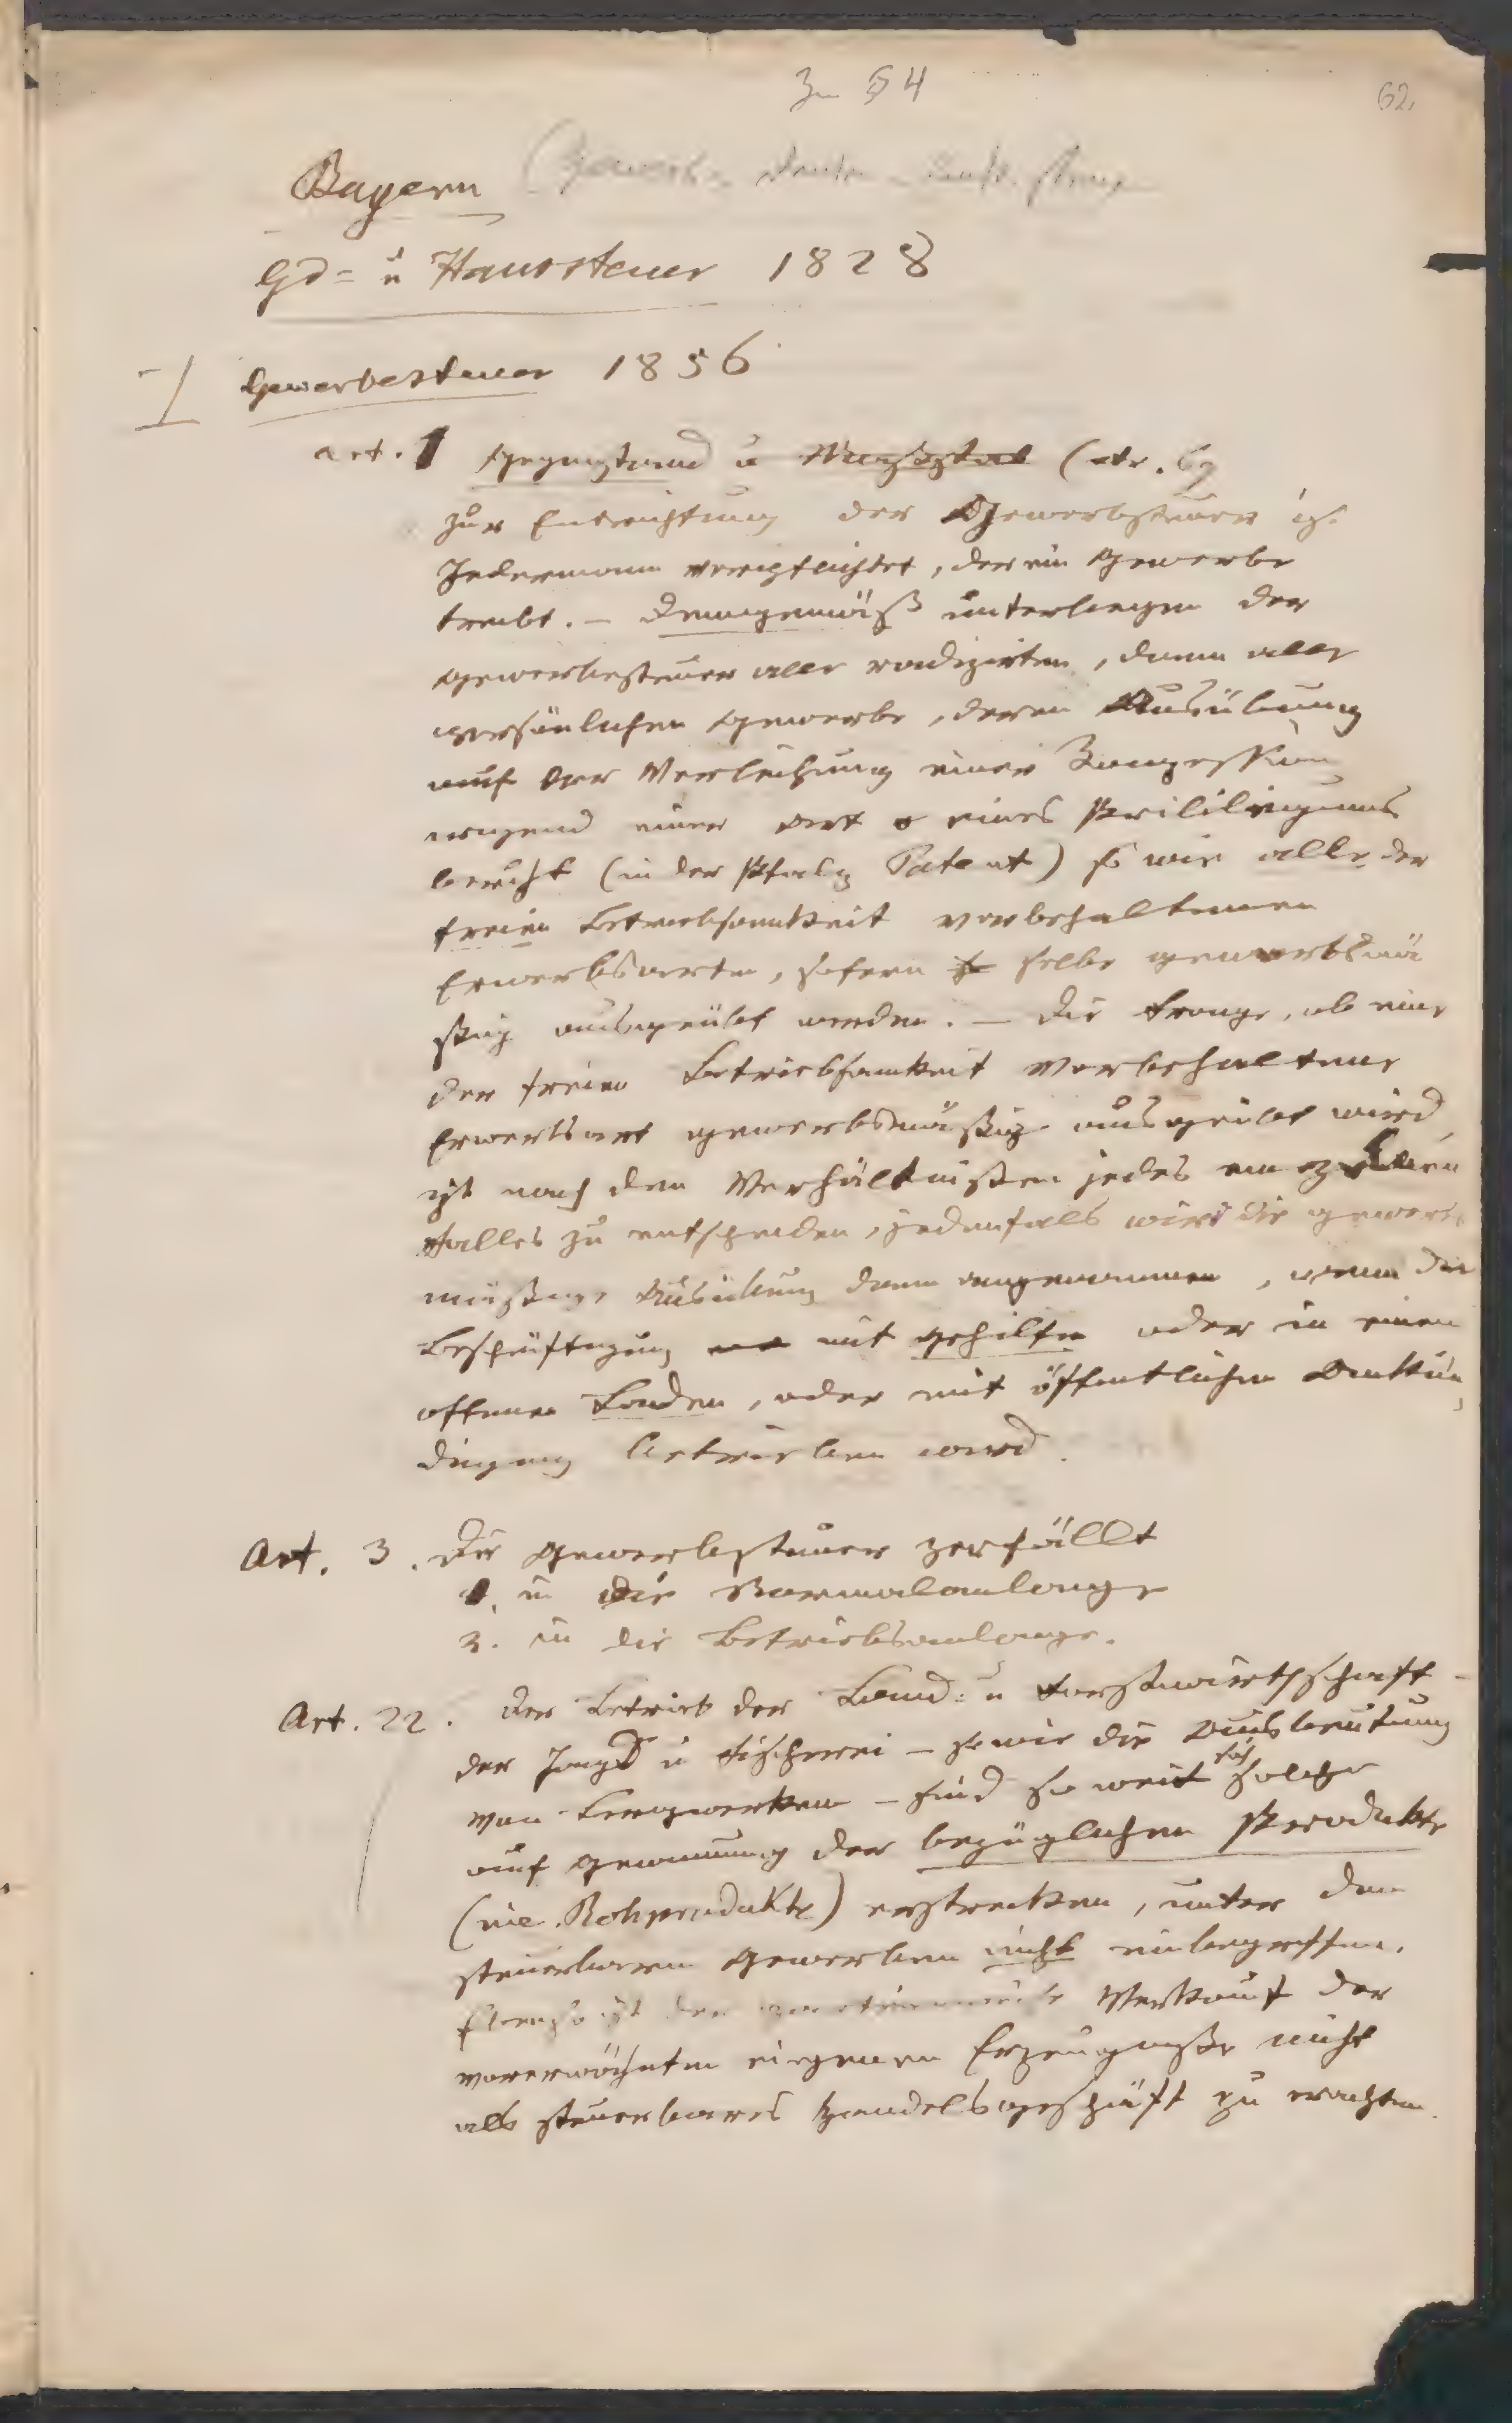 Zu § 4
62.
Bayern (Gewerbe-
Gd= u Haussteuer 1828
I Gewerbesteuer 1856
art. 1 Gegenstand u Maßstab (
zur Entrichtung der Gewerbsteuer ist
Jedermann verpflichtet, der ein Gewerbe
treibt. – Demgemäß unterliegen der
Gewerbesteuer alle radizirten, dann alle
persönlichen Gewerbe, deren Ausübung
auf der Verleihung einer Konzession
irgend einer Art o eines Privilegiums
beruht (in der Pfalz Patent) so wie alle der
freien Betriebsamkeit vorbehaltenen
Erwerbsarten, sofern selbe gewerbsmä
ßig ausgeübt werden. – Die Frage, ob eine
der freien Betriebsamkeit vorbehaltene
Erwerbsart gewerbsmäßig ausgeübt wird
ist nach den Verhältnißen jedes einzelnen
Falles zu entscheiden, jedenfalls wird die gewerbs
mäßige Ausübung dann angenommen, wenn die
Beschäftigung mit Gehilfen oder in einem
offenen Laden, oder mit öffentlicher Ankün
digung betrieben wird.
Art. 3. Die Gewerbsteuer zerfällt
1. in die Normalanlage
2. in die Betriebsanlage.
Art. 22. Der Betrieb der Land= u Forstwirthschaft –
der Jagd u Fischerei – sowie die Ausbeutung
von Bergwerken – sind so weit sich solche
auf Gewinnung der bezüglichen Produkte
(wie Rohprodukte) erstrecken, unter den
steuerbaren Gewerben nicht einbegriffen.
Ebenso ist der Verkauf der
vorerwähnten eigenen Erzeugniße nicht
als steuerbares Handelsgeschäft zu erachten.